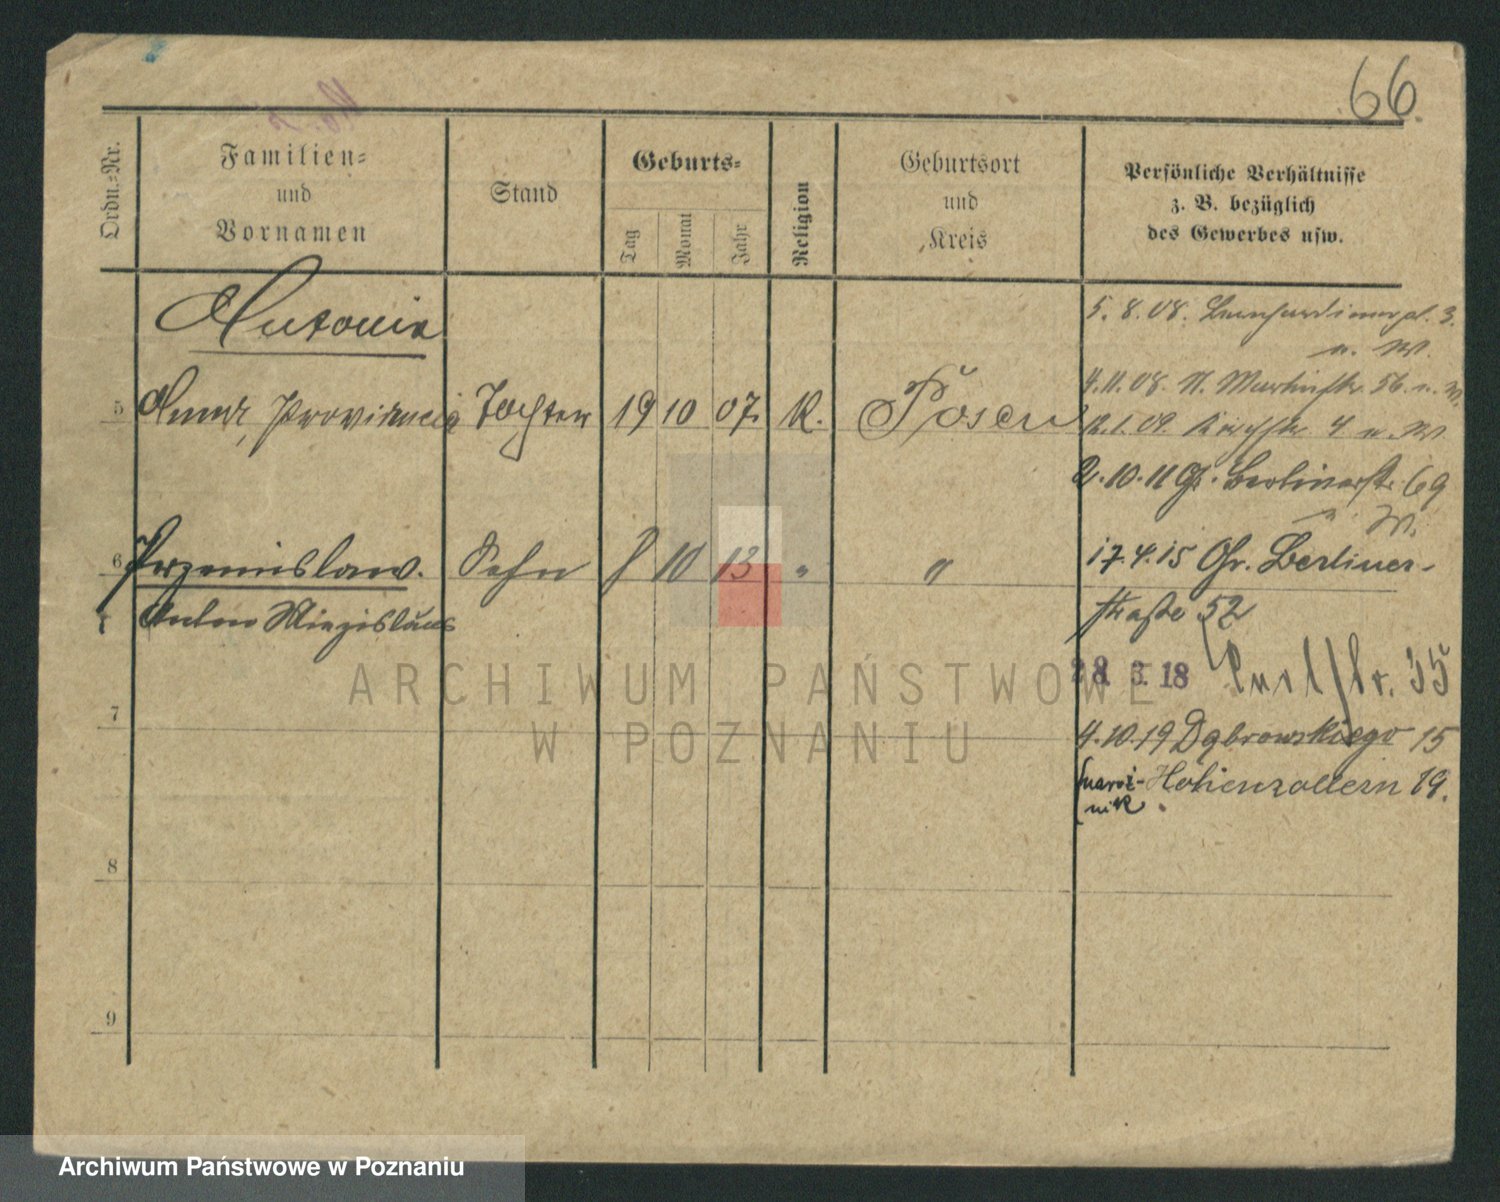 66.
Ordn.-Nr.
Familien-
und
Vornamen
Stand
Geburts-
Tag
Monat
Jahr
Religion
Geburtsort
und
Kreis
Persönliche Verhältnisse
z. B. bezüglich
des Gewerbes usw.
Antonia
5. 8. 08. Bernhardinerpl. 3.
W.
5 Anna, Tochter 19 10 07. K. Posen
4.11.08. St. Martinstr. 56 W.
2.1.09. 4 W
2.10.11 Gr. Berlinerstr. 69
W.
6 Przemislaw. Sohn 8 10 13 " "
17.4.15 Gr. Berliner-
Anton Miezislaus
straße 52
28. 3. 18 35
7
4.10.19 Dąbrowskiego 15
(naroż- Hohenzollern 19.
nik
8
9
ARCHIWUM PAŃSTWOWE
W POZNANIU
Archiwum Państwowe w Poznaniu